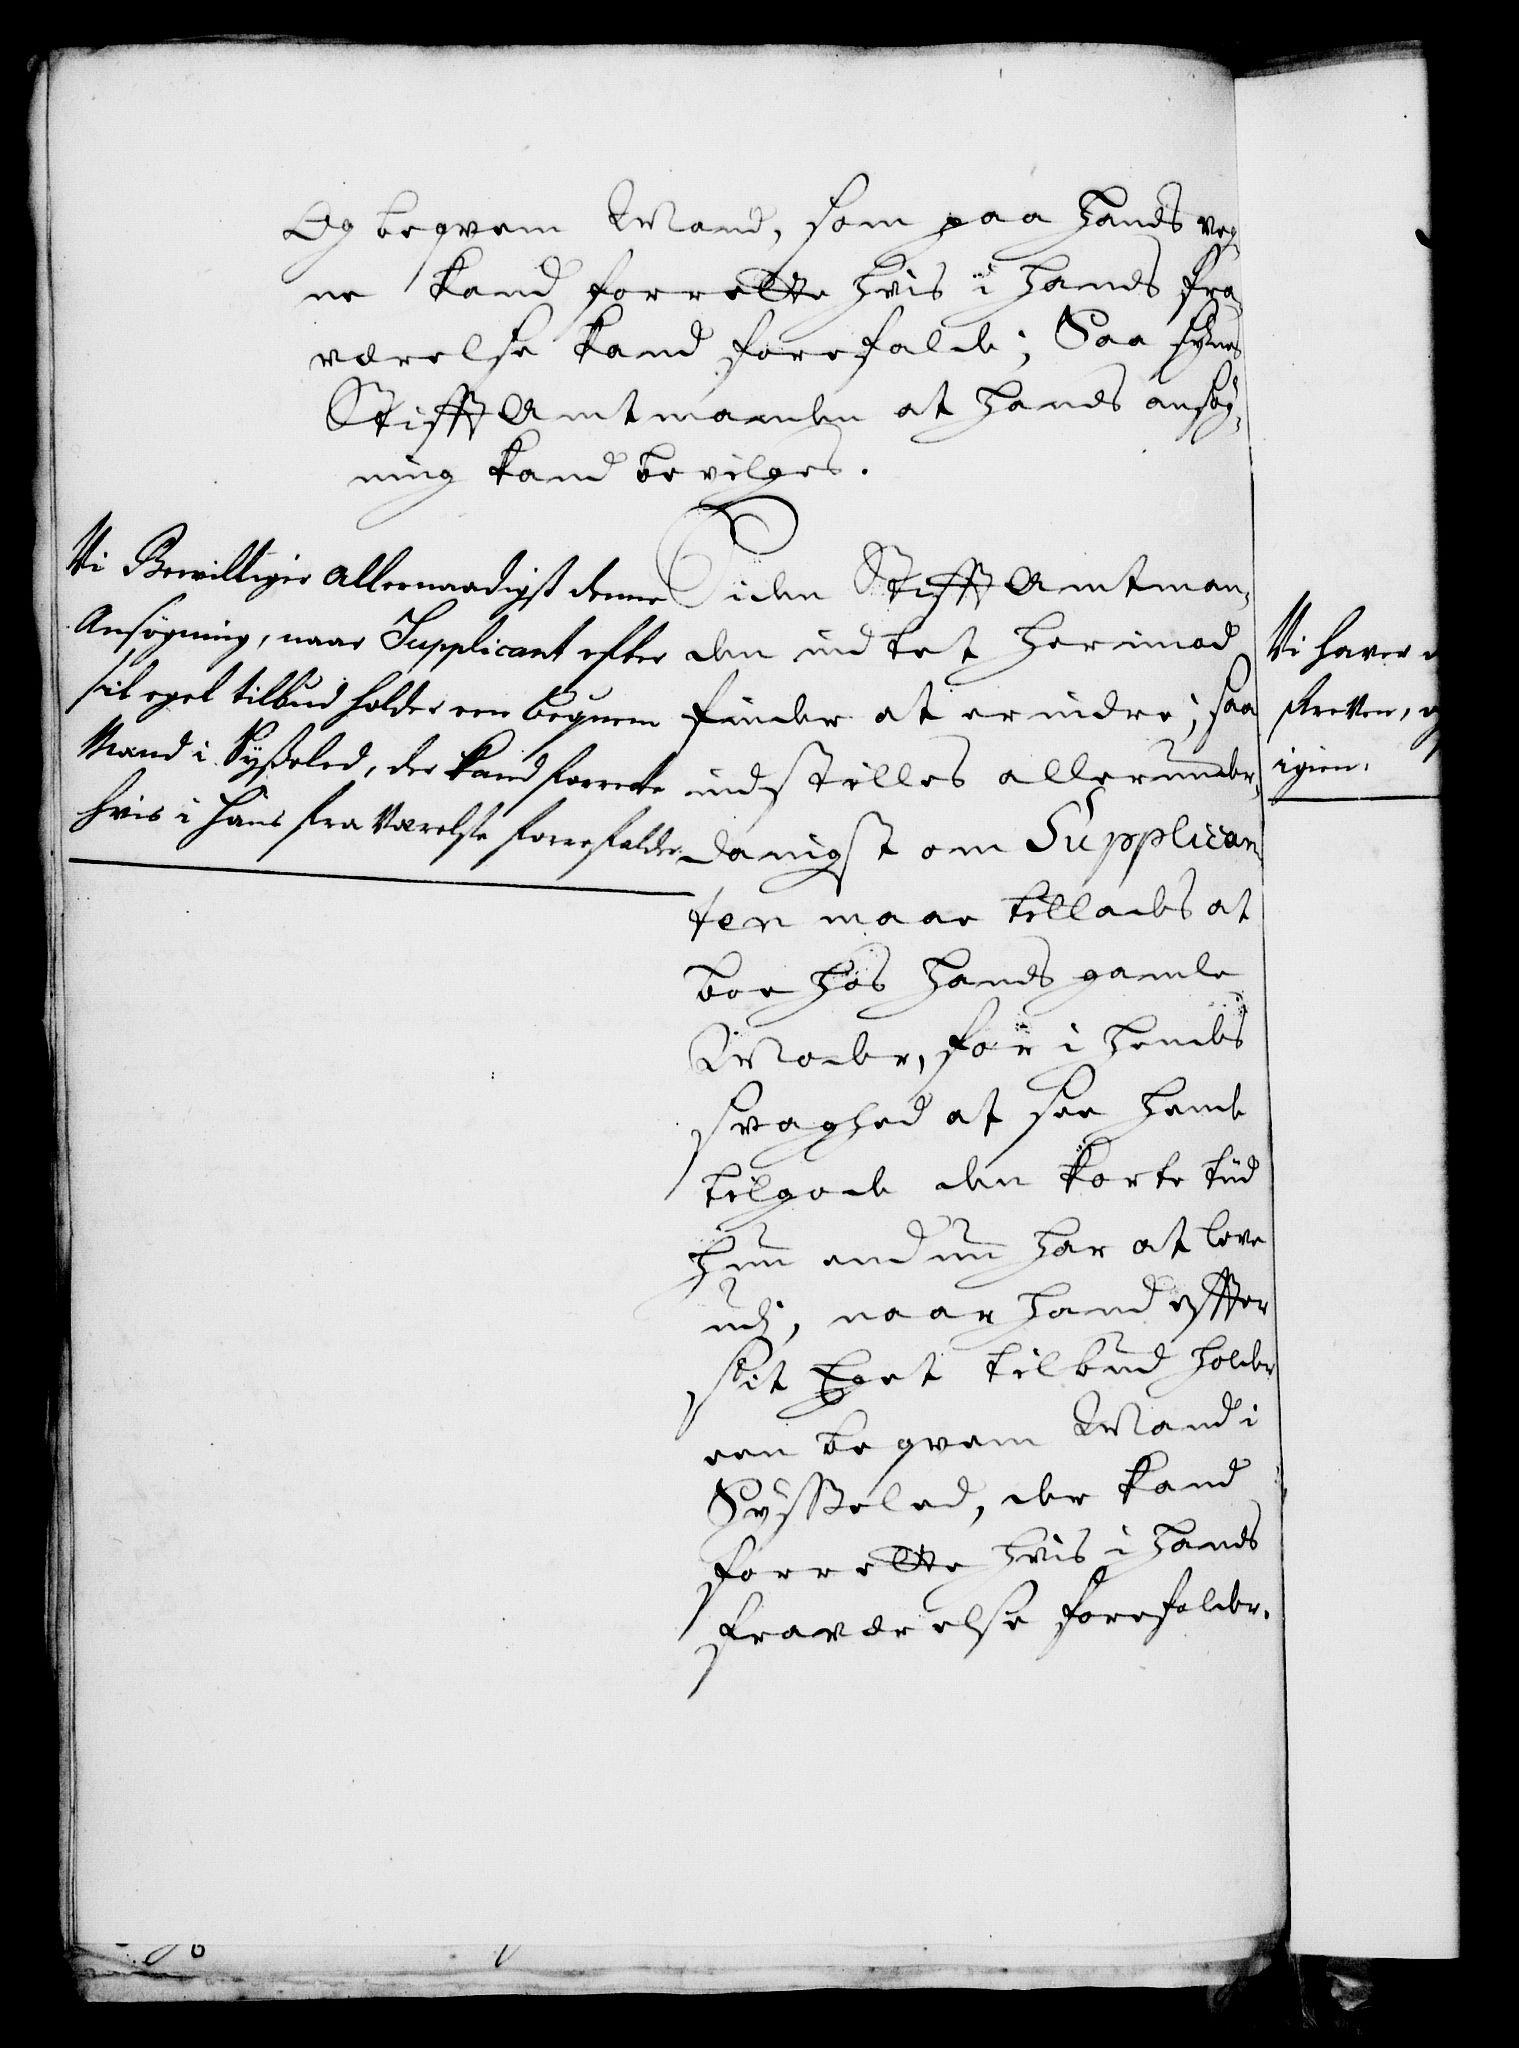 Og beqvem Mand, som paa hands veg¬
ne kand forrette hvis i hands fra¬
værelse kand forefalde; Saa synes
StifftAmtmanden at hands ansøg¬
ning kand bevilges.
Vi Bewilliger allernaadigst denne
Ansøgning, naar Supplicant efter
sit eget tilbud holder een beqvem
Mand i Sysseled, der kand forrette
hvis i Hans fraværelse forrefalder.
Siden StifftAmtman¬
den indtet herimod
finder at erindre; saa
indstilles allerunder¬
danigst om Supplican¬
ten maae tillades at
boe hos hands gamle
Moder, for i hendes
svaghed at see hende
tilgode den korte tiid
hun endnu har at leve
udi, naar hand effter
sit Eget tilbud holder
een beqvem Mand i
Sysseled, der kand
forrette hvis i hands
fraværelse forefalder.
Vi haver
igien.